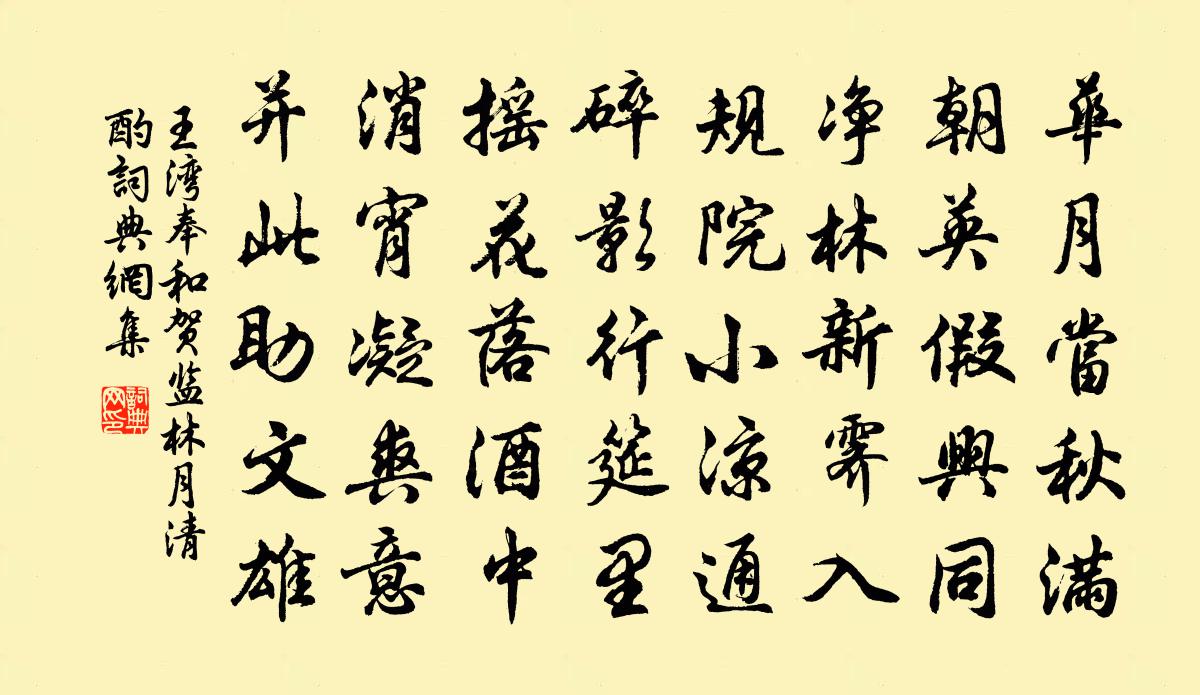 華月當秋滿
朝英假興同
净林新霽入
規院小凉通
碎影行筵里
摇花落酒中
消宵凝爽意
并此助文雄
王湾奉和贺监林月清
酌詞典網集
詞典
网印